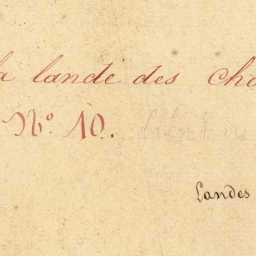 la lande des cho
N° 10.
Landes